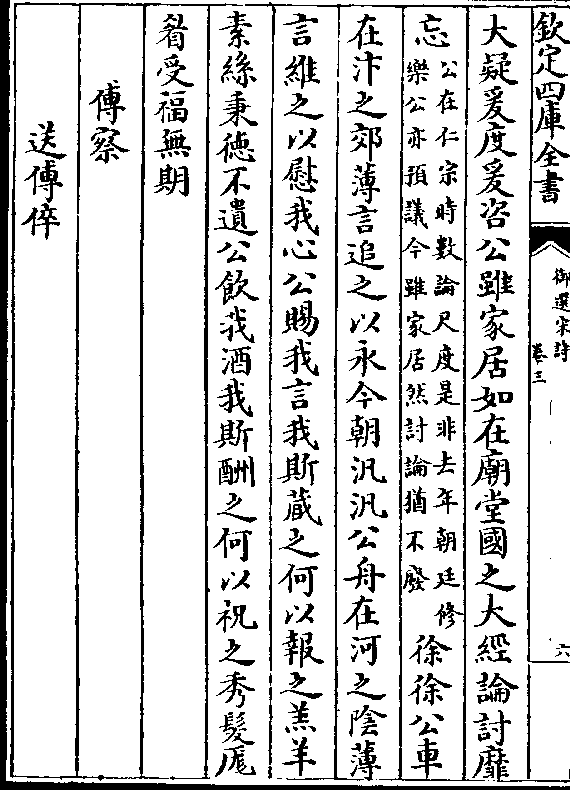 欽定四庫全書
御選宋詩
卷三
六
大疑爰度爰咨公雖家居如在廟堂國之大經論討靡
忘
公在仁宗時數論尺度是非去年朝廷修
樂公亦預議今雖家居然討論猶不廢
徐徐公車
在汴之郊薄言追之以永今朝汎汎公舟在河之陰薄
言維之以慰我心公賜我言我斯蔵之何以報之羔羊
素絲秉德不遺公飲我酒我斯酬之何以祝之秀髮厖
眉受福無期
傅察
送傅倅